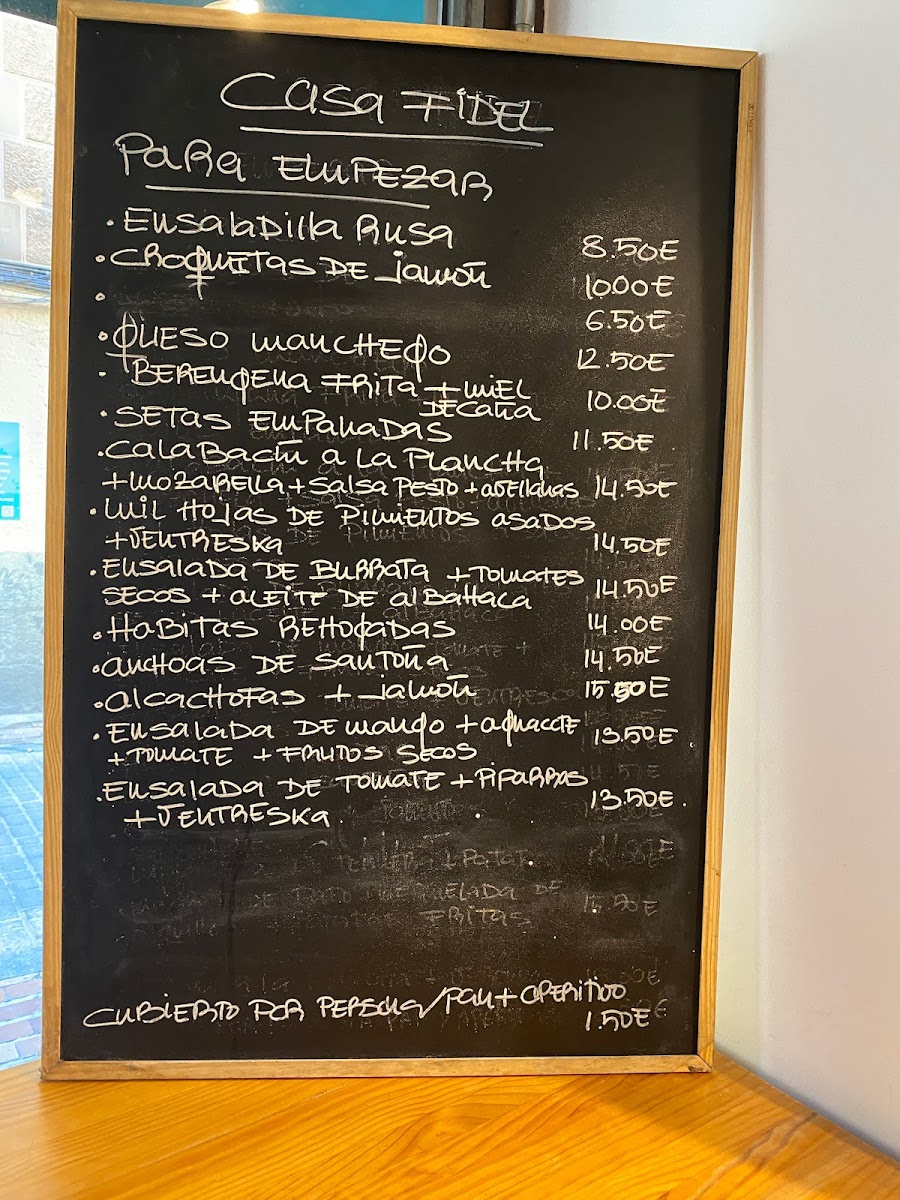 CASA FIDEL
PARA EMPEZAR
· ENSALADILLA RUSA 8.50E
· CROQUETAS DE JAMÓN 10.00E
· 6.50E
· QUESO MANCHEGO 12.50E
· BERENGENA FRITA + MIEL DE CAÑA 10.00E
· SETAS EMPANADAS 11.50E
· CALABACÍN A LA PLANCHA
+ MOZARELLA + SALSA PESTO + AVELLANAS 14.50E
· MIL HOJAS DE PIMIENTOS ASADOS
+ VENTRESKA 14.50E
· ENSALADA DE BURRATA + TOMATES
SECOS + ACEITE DE ALBAHACA 14.50E
· HABITAS REHOGADAS 14.00E
· ANCHOAS DE SANTOÑA 14.50E
· ALCACHOFAS + JAMÓN 15.50E
· ENSALADA DE MANGO + AGUACTE
+ TOMATE + FRUTOS SECOS 13.50E
· ENSALADA DE TOMATE + PIPARRAS
+ VENTRESKA 13.50E.
CUBIERTO POR PERSONA/PAN + APERITIVO
1.50E